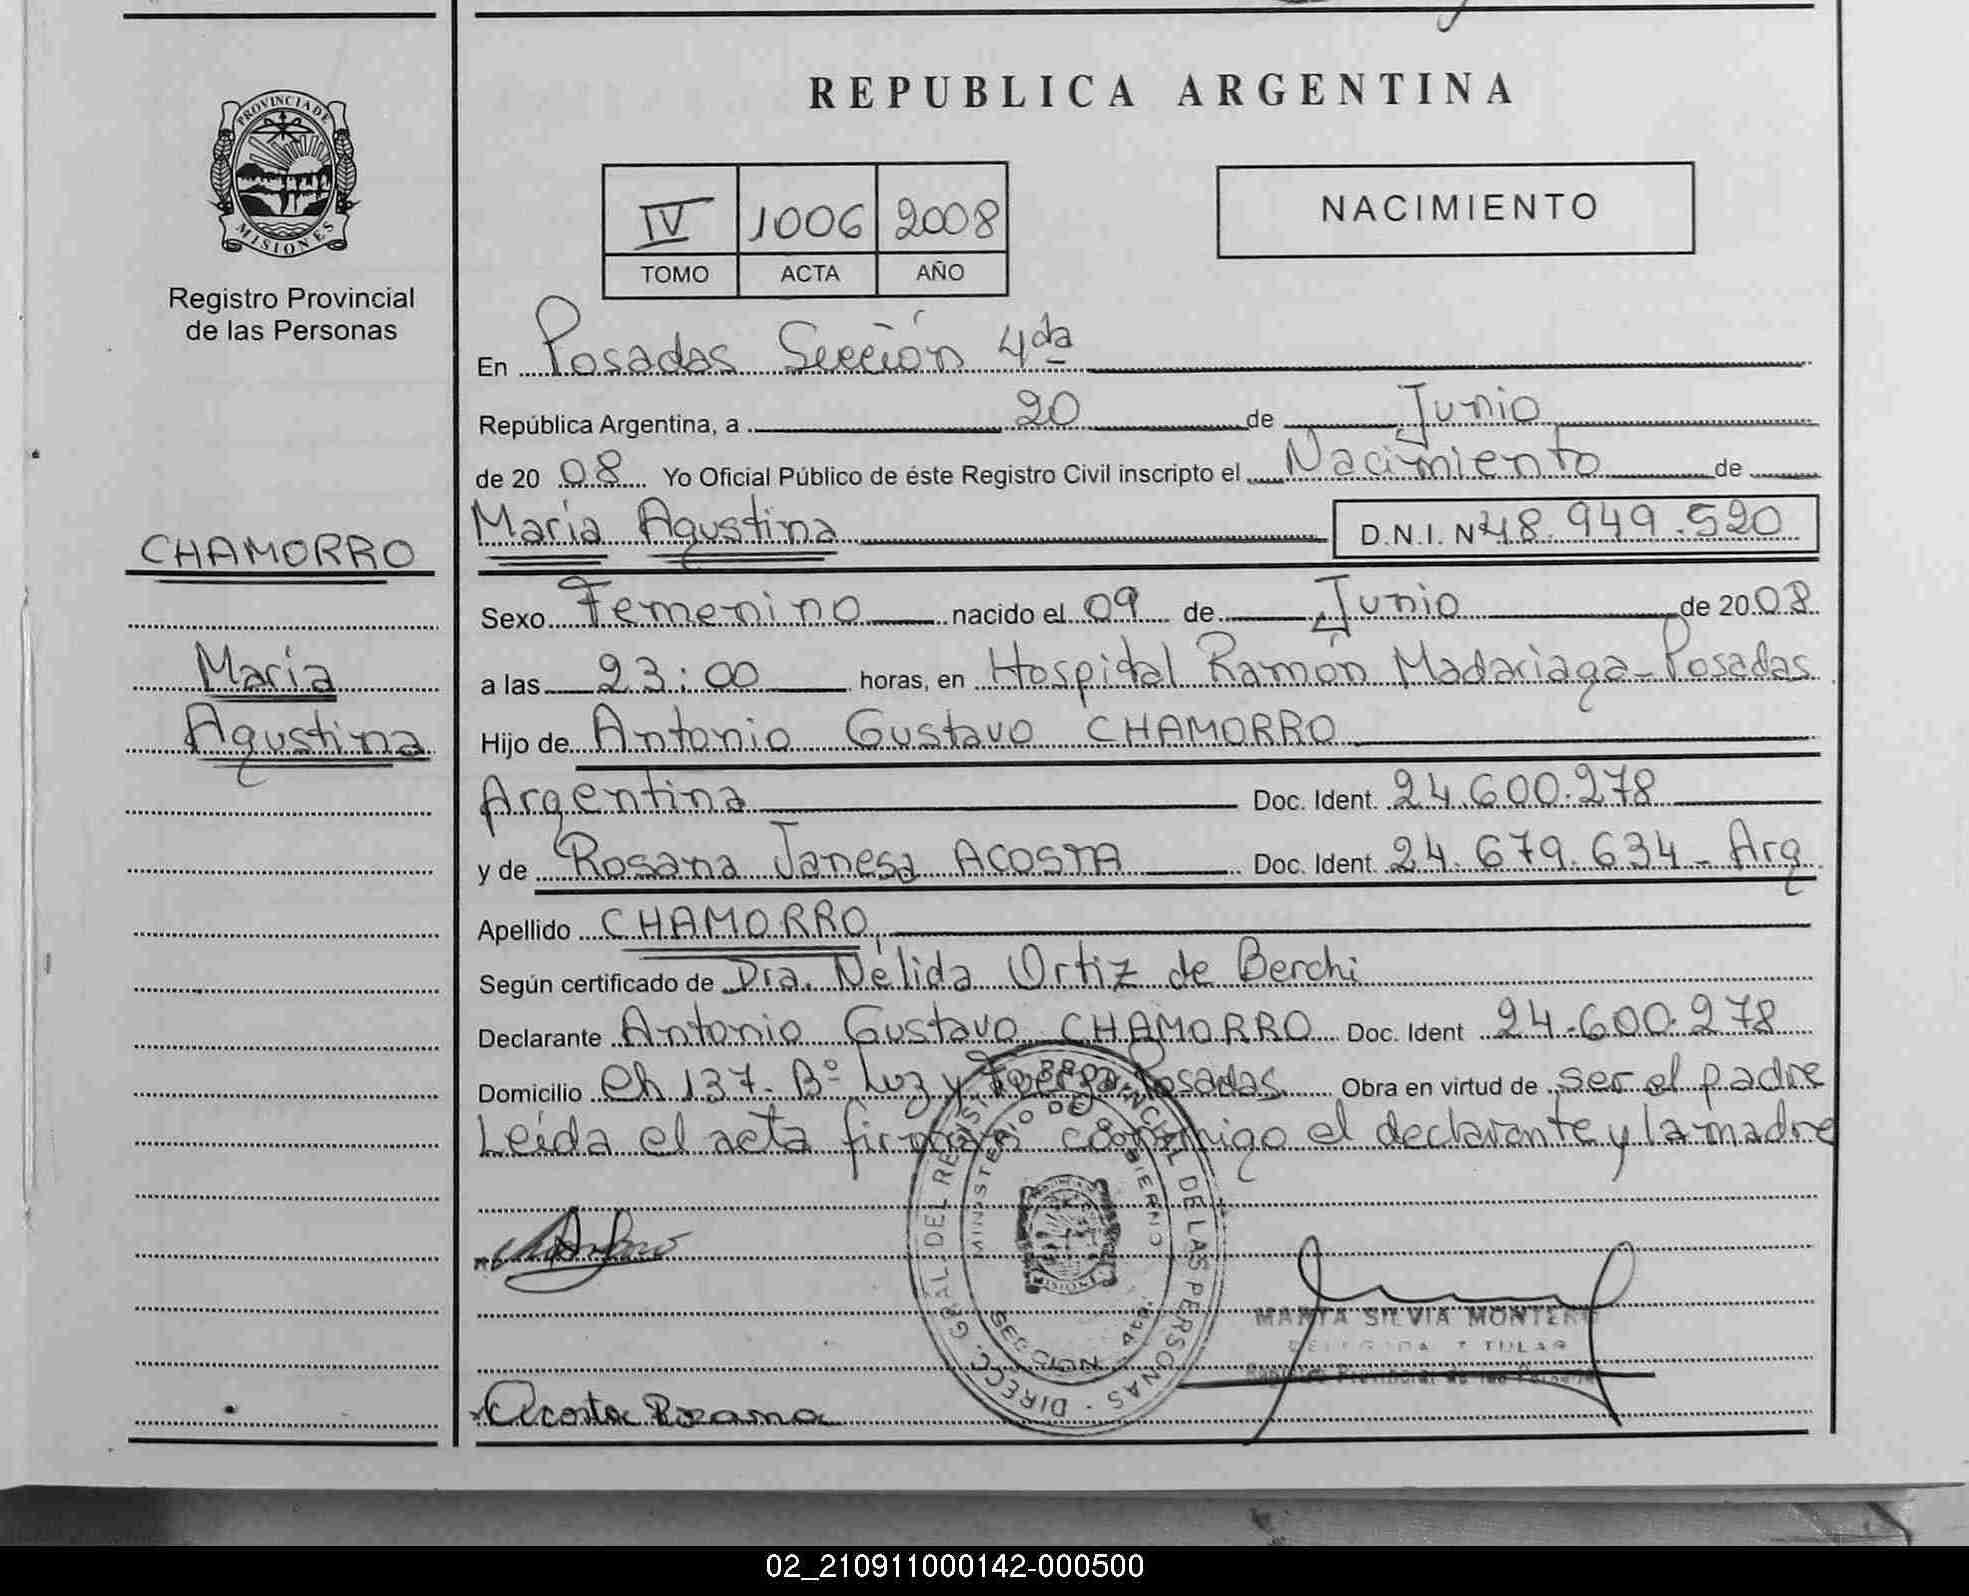 REPUBLICA ARGENTINA
PROVINCIA DE
MISIONES
Registro Provincial
de las Personas
IV 1006 2008
TOMO ACTA AÑO
NACIMIENTO
En Posadas Sección 4da
República Argentina, a 20 de Junio
de 20 08 Yo Oficial Público de éste Registro Civil inscripto el Nacimiento de
CHAMORRO
María Agustina D.N.I. Nº 48.949.520
Sexo Femenino nacido el 09 de Junio de 20 08
María
a las 23:00 horas, en Hospital Ramón Madariaga - Posadas
Agustina
Hijo de Antonio Gustavo CHAMORRO
Argentina Doc. Ident. 24.600.278
y de Rosana Janesa ACOSTA Doc. Ident. 24.679.634 - Arg
Apellido CHAMORRO
Según certificado de Dra. Nélida Ortiz de Berchi
Declarante Antonio Gustavo CHAMORRO Doc. Ident 24.600.278
Domicilio Ch 137. Bº Luz y Fuerza Posadas Obra en virtud de ser el padre
Leída el acta firman conmigo el declarante y la madre
DIRECC. GRAL DEL REGIST. PROVINCIAL DE LAS PERSONAS
MINISTERIO DE GOBIERNO
MISIONES
MARTA SILVIA MONTERO
DELEGADA TITULAR
Registro Provincial de las Personas
Acosta Rosana
02_210911000142-000500